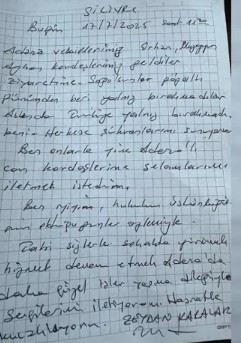 SİLİVRİ
Bugün 17/7/2025 saat 11
Adana vekillerimiz Orhan, Müzeyyen
Ayhan kardeşlerimiz geldiler
ziyaretime. Sağolsunlar
gününden beri yalnız bırakmadılar
Aslında Türkiye yalnız bırakmadı
beni. Herkese şükranlarımı sunuyorum
Ben onlarla yine Adana'lı
can kardeşlerime selamlarımı
iletmek istedim.
Ben iyiyim, hukukun üstünlüğü
günler özlemiyle.
Tabi sizlerle sahada yürümek
hizmet devam etmek Adana'da
daha güzel işler yapma dileğiyle
sevgilerimi iletiyorum. Hasretle
kucaklıyorum. ZEYDAN KARALAR